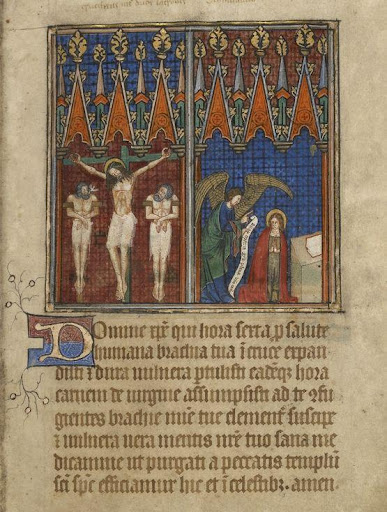 Domine xp̄e qui hora sexta p̄ salute
humana brachia tua ī cruce expan
disti ⁊ dura uulnera ꝑtulisti eadēqꝫ hora
carnem de uirgine assumpsisti ad te ꝯfu
gientes brachiis mīe tue clement̄ suscipe
⁊ uulnera mentis nr̄e tuo sana me
dicamine ut purgati a peccatis templū
sc̄i sp̄c efficiamur hic et ī celestibꝫ. amen.